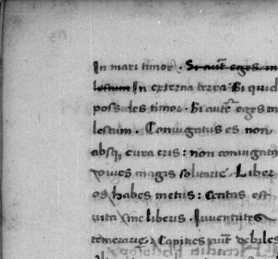 In mari timor. Si aut eges m
lestum In externa terra Si quid
possides timor. Si aut eges m
lestum. Coniugatus es non
absq; cura eris: non coniugat
vives magis solitarie Liber
os habes metus: Orbitas est
vita sine liberis. Iuventutes
temerarie. Capites sunt debiles